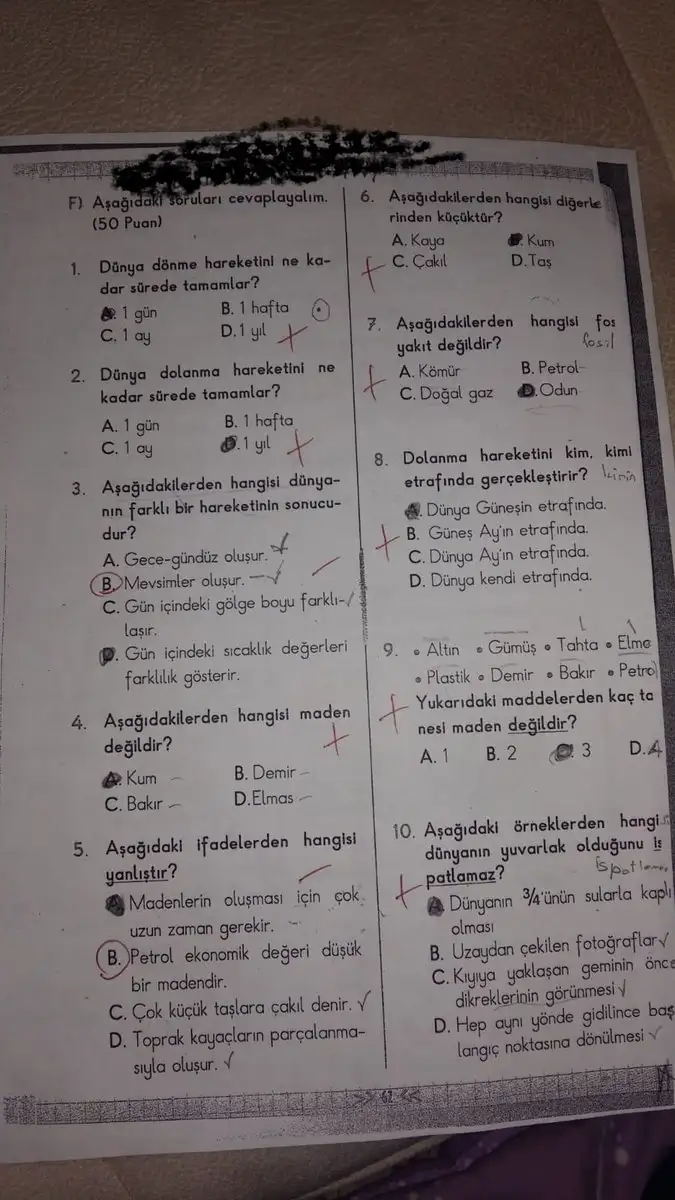 F) Aşağıdaki soruları cevaplayalım.
(50 Puan)
1. Dünya dönme hareketini ne ka-
dar sürede tamamlar?
A. 1 gün B. 1 hafta
C. 1 ay D. 1 yıl
2. Dünya dolanma hareketini ne
kadar sürede tamamlar?
A. 1 gün B. 1 hafta
C. 1 ay D. 1 yıl
3. Aşağıdakilerden hangisi dünya-
nın farklı bir hareketinin sonucu-
dur?
A. Gece-gündüz oluşur.
B. Mevsimler oluşur.
C. Gün içindeki gölge boyu farklı-
laşır.
D. Gün içindeki sıcaklık değerleri
farklılık gösterir.
4. Aşağıdakilerden hangisi maden
değildir?
A. Kum B. Demir
C. Bakır D. Elmas
5. Aşağıdaki ifadelerden hangisi
yanlıştır?
A. Madenlerin oluşması için çok
uzun zaman gerekir.
B. Petrol ekonomik değeri düşük
bir madendir.
C. Çok küçük taşlara çakıl denir.
D. Toprak kayaçların parçalanma-
sıyla oluşur.
6. Aşağıdakilerden hangisi diğerle
rinden küçüktür?
A. Kaya B. Kum
C. Çakıl D. Taş
7. Aşağıdakilerden hangisi fos
yakıt değildir? fosil
A. Kömür B. Petrol
C. Doğal gaz D. Odun
8. Dolanma hareketini kim, kimi
etrafında gerçekleştirir? kimin
A. Dünya Güneşin etrafında.
B. Güneş Ay'ın etrafında.
C. Dünya Ay'ın etrafında.
D. Dünya kendi etrafında.
9. • Altın • Gümüş • Tahta • Elma
• Plastik • Demir • Bakır • Petrol
Yukarıdaki maddelerden kaç ta
nesi maden değildir?
A. 1 B. 2 C. 3 D. 4
10. Aşağıdaki örneklerden hangis
dünyanın yuvarlak olduğunu is
patlamaz?
A. Dünyanın 3/4'ünün sularla kaplı
olması
B. Uzaydan çekilen fotoğraflar
C. Kıyıya yaklaşan geminin önce
dikreklerinin görünmesi
D. Hep aynı yönde gidilince baş
langıç noktasına dönülmesi
>> 62 <<